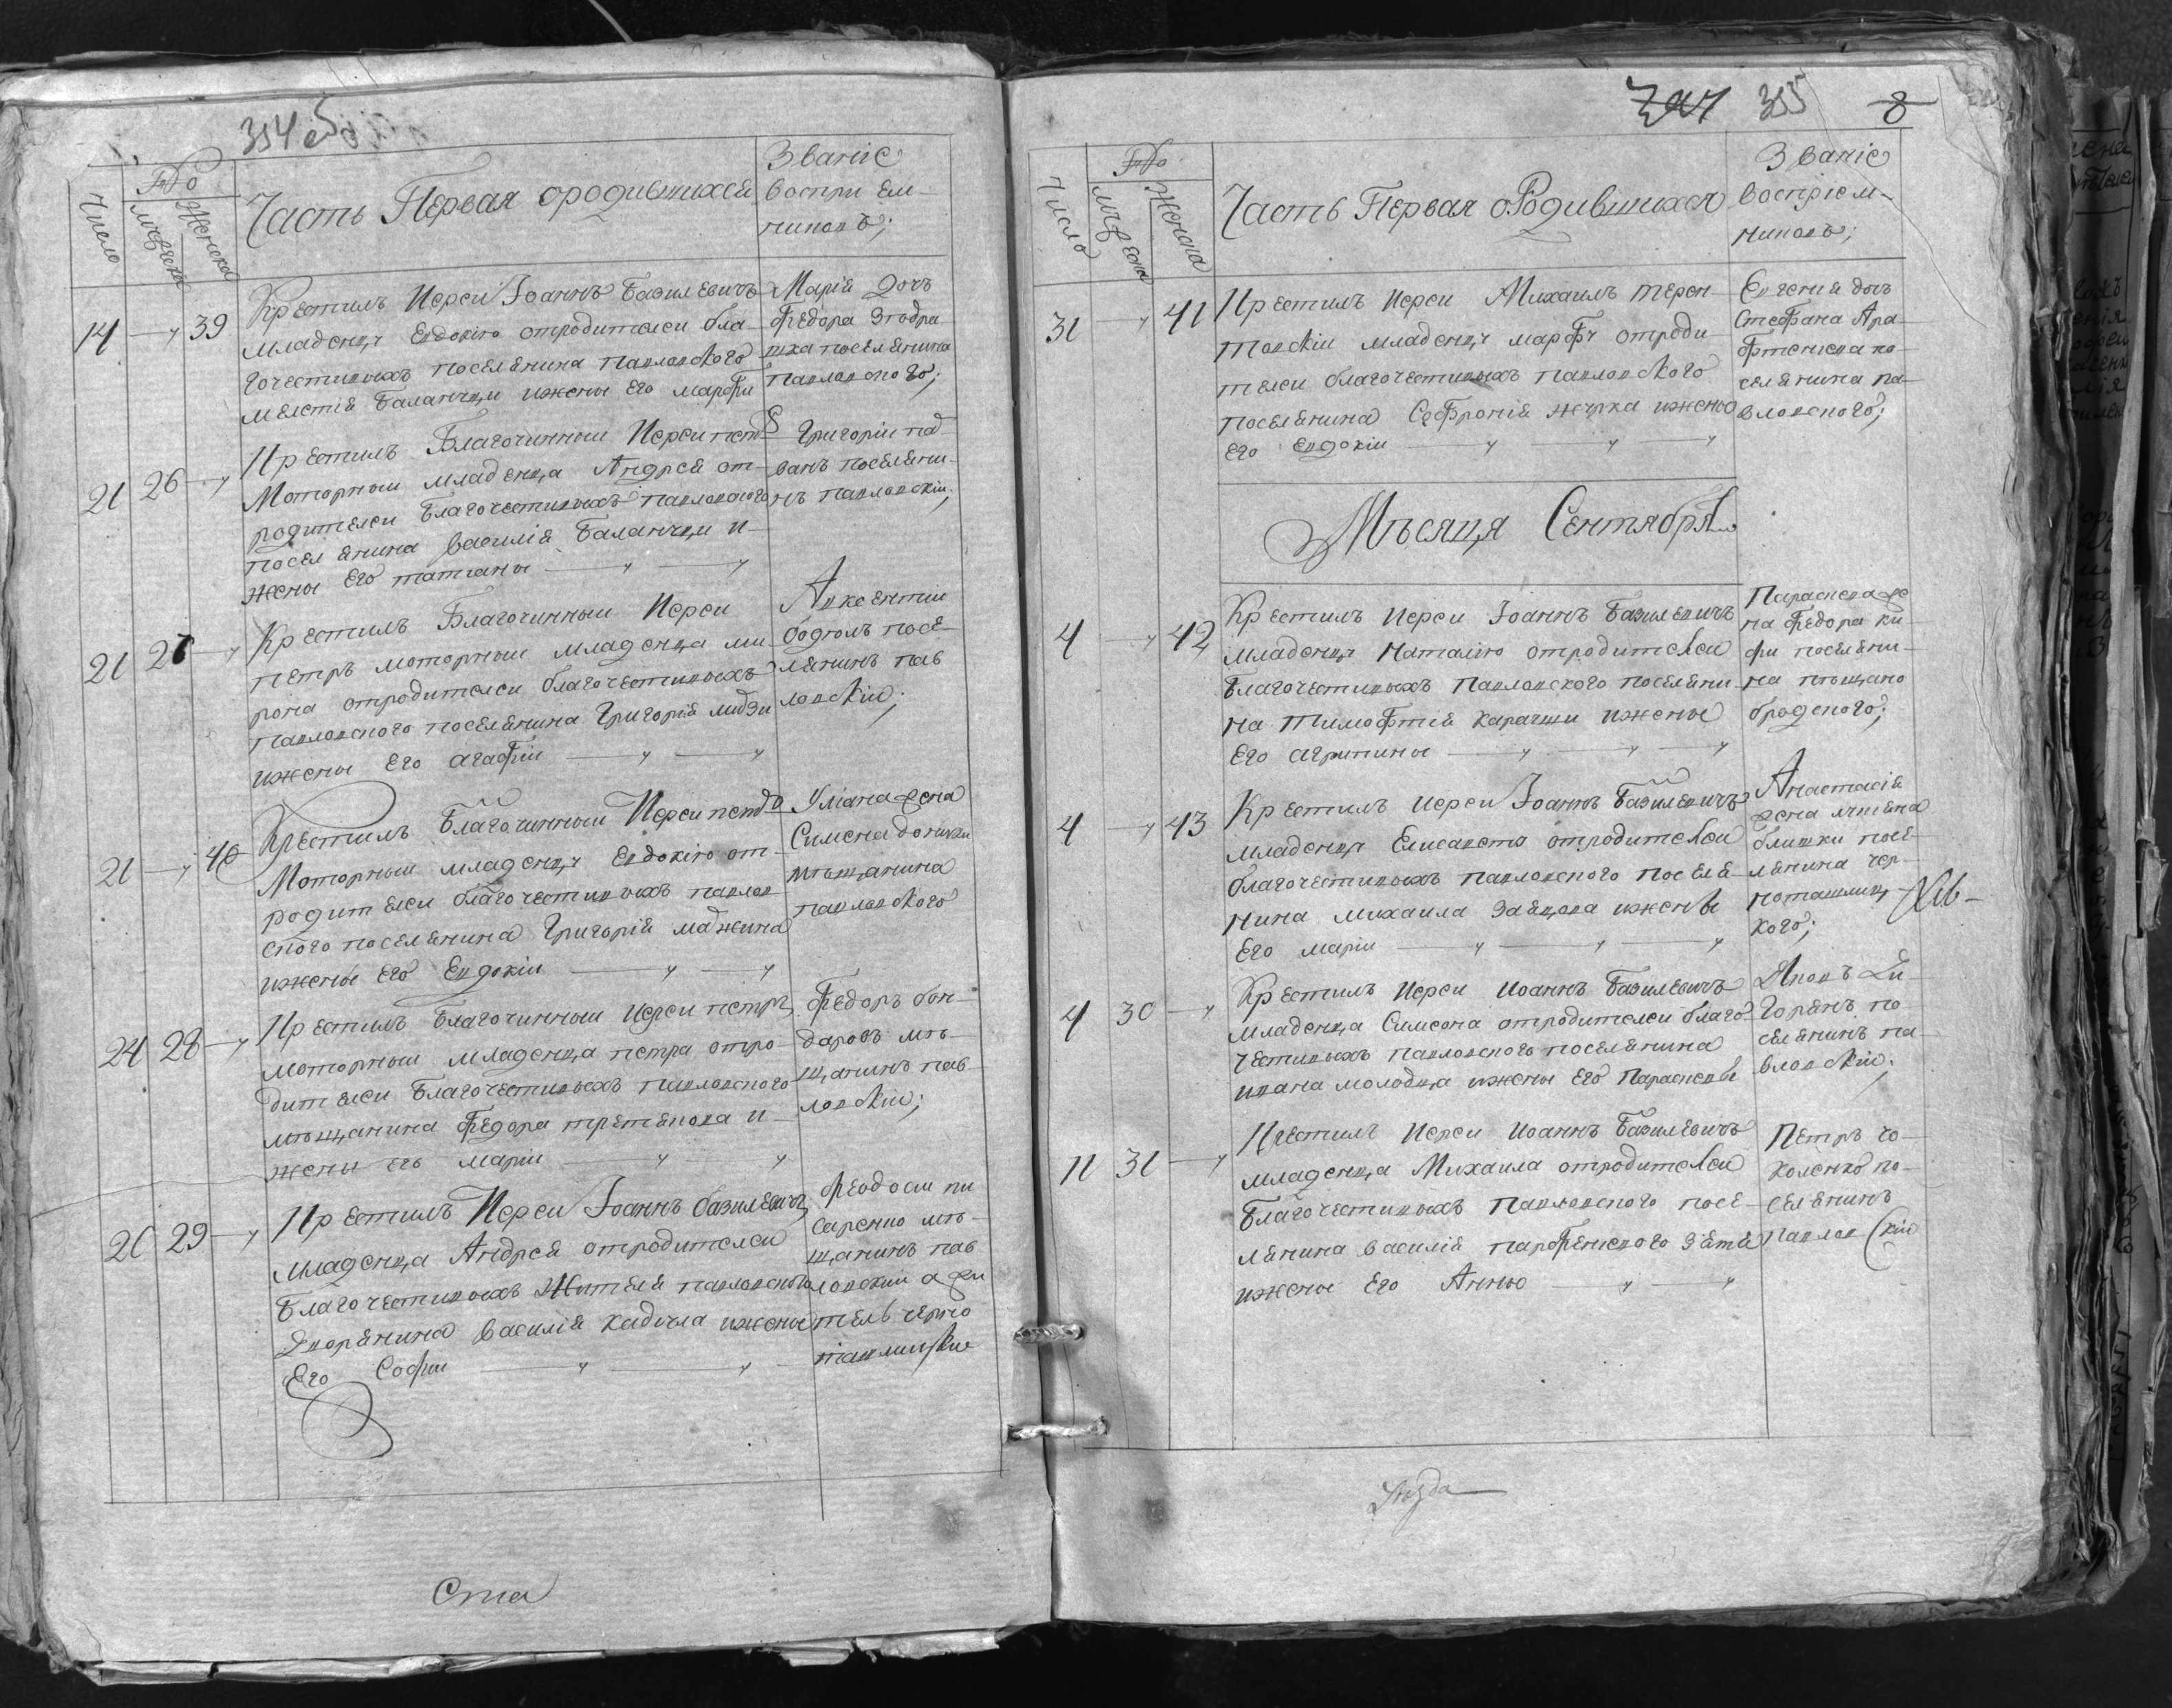 354 об
Число
Мужеска
Женска
Часть Первая ородившихся
Званіе
воспри ем-
никовъ;
14 39
Крестилъ Иерей Іоаннъ Базилевичъ
младенцу Евдокію отродителей бла-
гочестивыхъ поселянина павловского
Балануци ижены Его марфы
Марія дочь
Федора
поселянина
павловского;
21 26
Крестилъ Благочинный Иерей петръ
Моторный младенца Андрея от-
родителей Благочестивыхъ павловского
поселянина Василія Балануци и
жены Его татианы
Григорій
поселяни-
нъ павловскій;
21 27
Крестилъ Благочинный Иерей
петръ моторный младенца ми-
рона отродителей благочестивыхъ
павловского поселянина Григорія
ижены Его агафіи
Авксентий
посе-
лянинъ пав
ловскій;
21 40
Крестилъ Благочинный Иерей петръ
Моторный младенцу Евдокію от-
родителей благочестивыхъ павлов
ского поселянина Григорія маджина
ижены Его Евдокіи
Уліана жена
Симена
мѣщанина
павловского
24 28
Крестилъ Благочинный Иерей петръ
моторный младенца петра отро-
дителей Благочестивыхъ павловского
мѣщанина Федора и
жены его маріи
Федоръ бон-
даровъ мѣ-
щанинъ пав
ловскій;
26 29
Крестилъ Иерей Іоаннъ базилевичъ
младенца Андрея отродителей
Благочестивыхъ Жителя павловского
Дворянина Василія ижены
Его Софіи
Феодосій пи
саренко мѣ-
щанинъ пав
ловскій а жи
тель черно
ташлицкій
Ста
355 8
Число
Мужеска
Женска
Часть Первая оРодившихся
Званіе
воспріем-
никовъ;
31 41
Крестилъ Иерей Михаилъ терен-
товскій младенцу марфу отроди
телей благочестивыхъ павловского
поселянина Софронія журка ижены
Его Евдокіи
Евгенія дочь
Стефана Ара-
по-
селянина па-
вловского;
Мѣсяця Сентября
4 42
Крестилъ Иерей Іоаннъ Базилевичъ
младенцу Наталію отродителей
Благочестивыхъ Павловского поселяни-
на Тимофтія карачши ижены
Его агрипины
Параскева же
на Федора ки-
фи поселяни-
на пѣщано
бродского;
4 43
Крестилъ иерей Іоаннъ Базилевичъ
младенцу Елисаветъ отродителей
благочестивыхъ павловского поселя-
нина михаила Заяцова ижены
Его маріи
Анастасія
жена
посе-
лянина чер-
ноташлиц
кого;
4 30
Крестилъ Иерей Иоаннъ Базилевичъ
младенца Симеона отродителей благо-
честивыхъ павловского поселянина
ивана молодца ижены Его Параскевы
Яковъ
по
селянинъ па-
вловскій;
11 31
Крестилъ Иерей Иоаннъ Базилевичъ
младенца Михаила отродителей
Благочестивыхъ Павловского посе-
лянина василія парфенского зятя
ижены Его Анны
Петръ го-
коленко по-
селянинъ
Павловскій